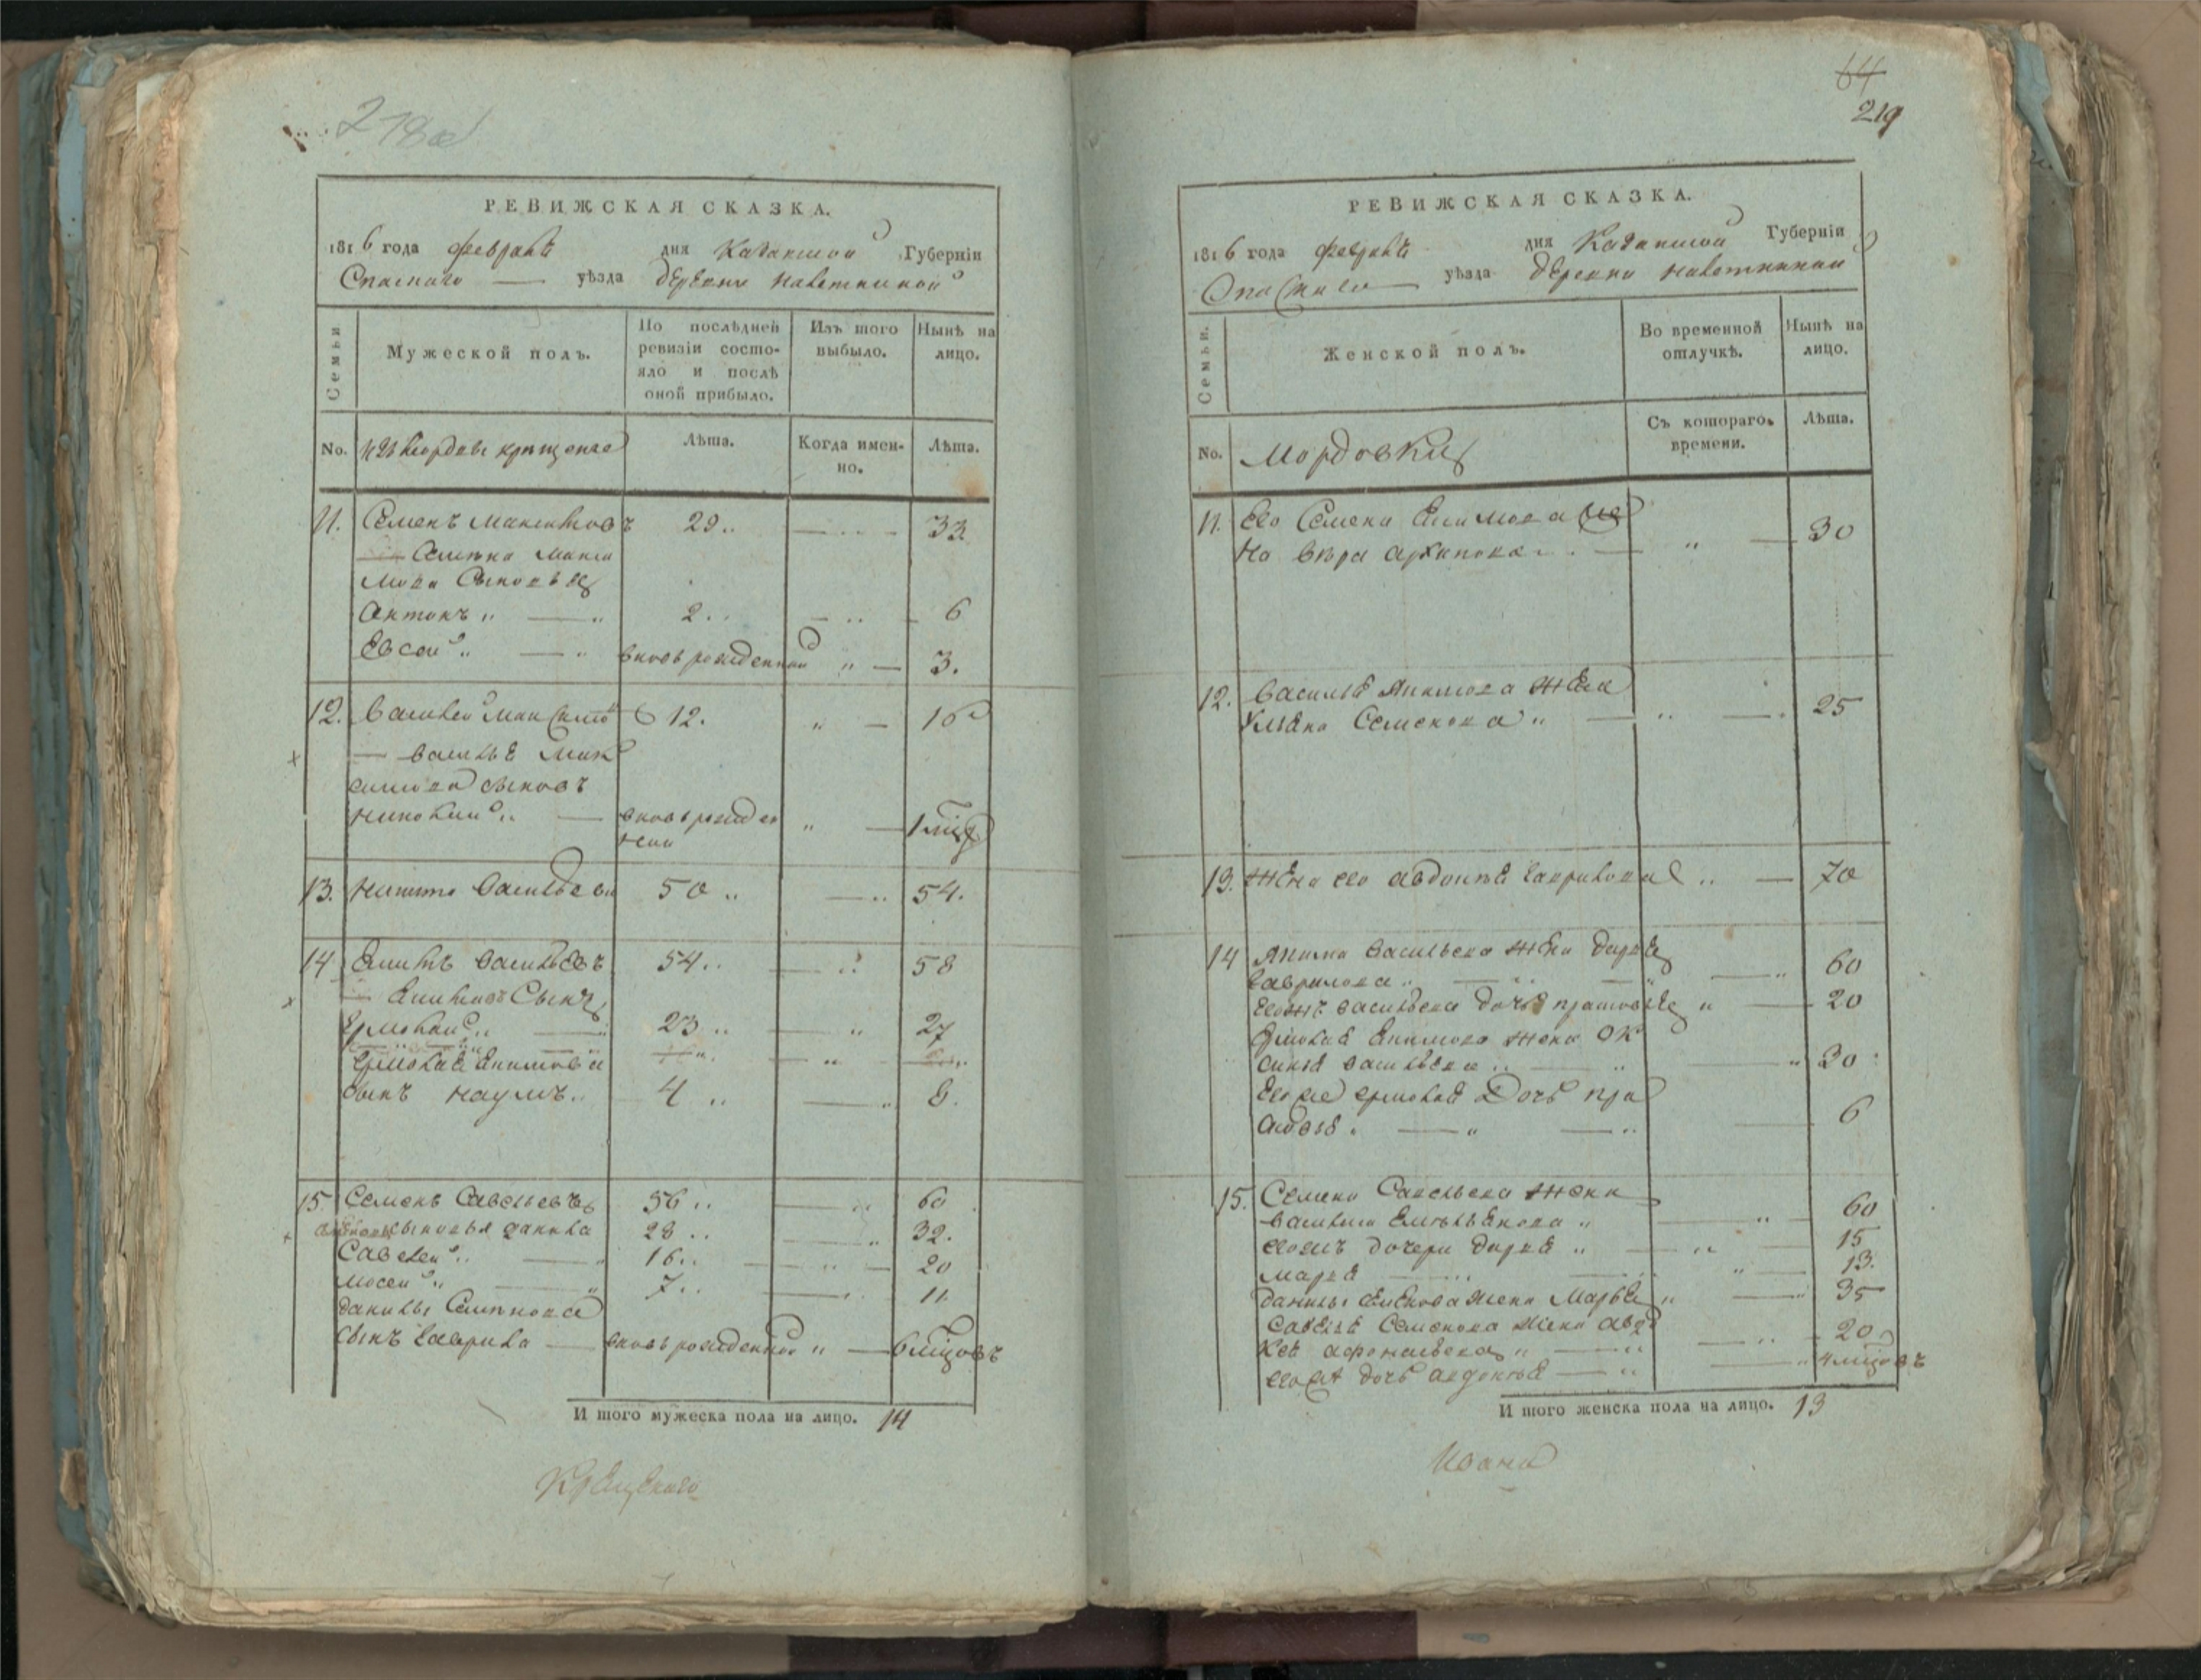 218об
РЕВИЖСКАЯ СКАЗКА.
1816 года февраля дня Казанской Губерніи
Спаскаго уѣзда деревни
Семьи
Мужеской полъ.
По послѣдней ревизіи состо-
яло и послѣ оной прибыло.
Изъ того выбыло.
Нынѣ на лицо.
No. крещеные
Лѣта.
Когда имен-
но.
Лѣта.
11. Семенъ Максимовъ 29 33
Семена Макси
мова Сыновья
Антонъ 2 6
Евсей вновь рожденной 3.
12. Василей Максимо 12. 16
Василья Мак
симова сынъ
вновь рожден
ной
1 мцъ
13. Никита Васильевъ 50 54.
14 Екимъ Васильевъ 54 58
Екимовъ Сынъ
Ермолай 23 27
Ермолая Екимова
сынъ Наумъ 4 8.
15. Семенъ Савельевъ 56 60
сыновья Данила 28 32.
Савелей 16 20
Мосей 7 11
Данилы Семенова
сынъ Гаврила вновь рожденной 6 мцовъ
И того мужеска пола на лицо. 14
64
219
РЕВИЖСКАЯ СКАЗКА.
1816 года февраля дня Казанской Губерніи
Спаскаго уѣзда деревни
Семьи.
Женской полъ.
Во временной отлучкѣ.
Нынѣ на лицо.
No. Мордовки
Съ котораго
времени.
Лѣта.
11. Его Семена же
на Вѣра Архипова 30
12. Василья жена
Ульяна Семенова 25
13. Жена его Авдотья Гаврилова 70
14 Акима Васильева жена Дарья
Гаврилова 60
Васильева дочь 20
Ермолая Екимова жена Ок
синья Васильева 30
Его же Ермолая Дочь Пра
сковья 6
15. Семена Савельева жена
Василиса Емельянова 60
дочери Дарья 15
Марья 13.
Данилы Семенова жена Марья 35
Савелья Семенова жена Авдо
Афонасьева 20
дочь Авдотья 4 мцовъ
И того женска пола на лицо. 13
Ивана